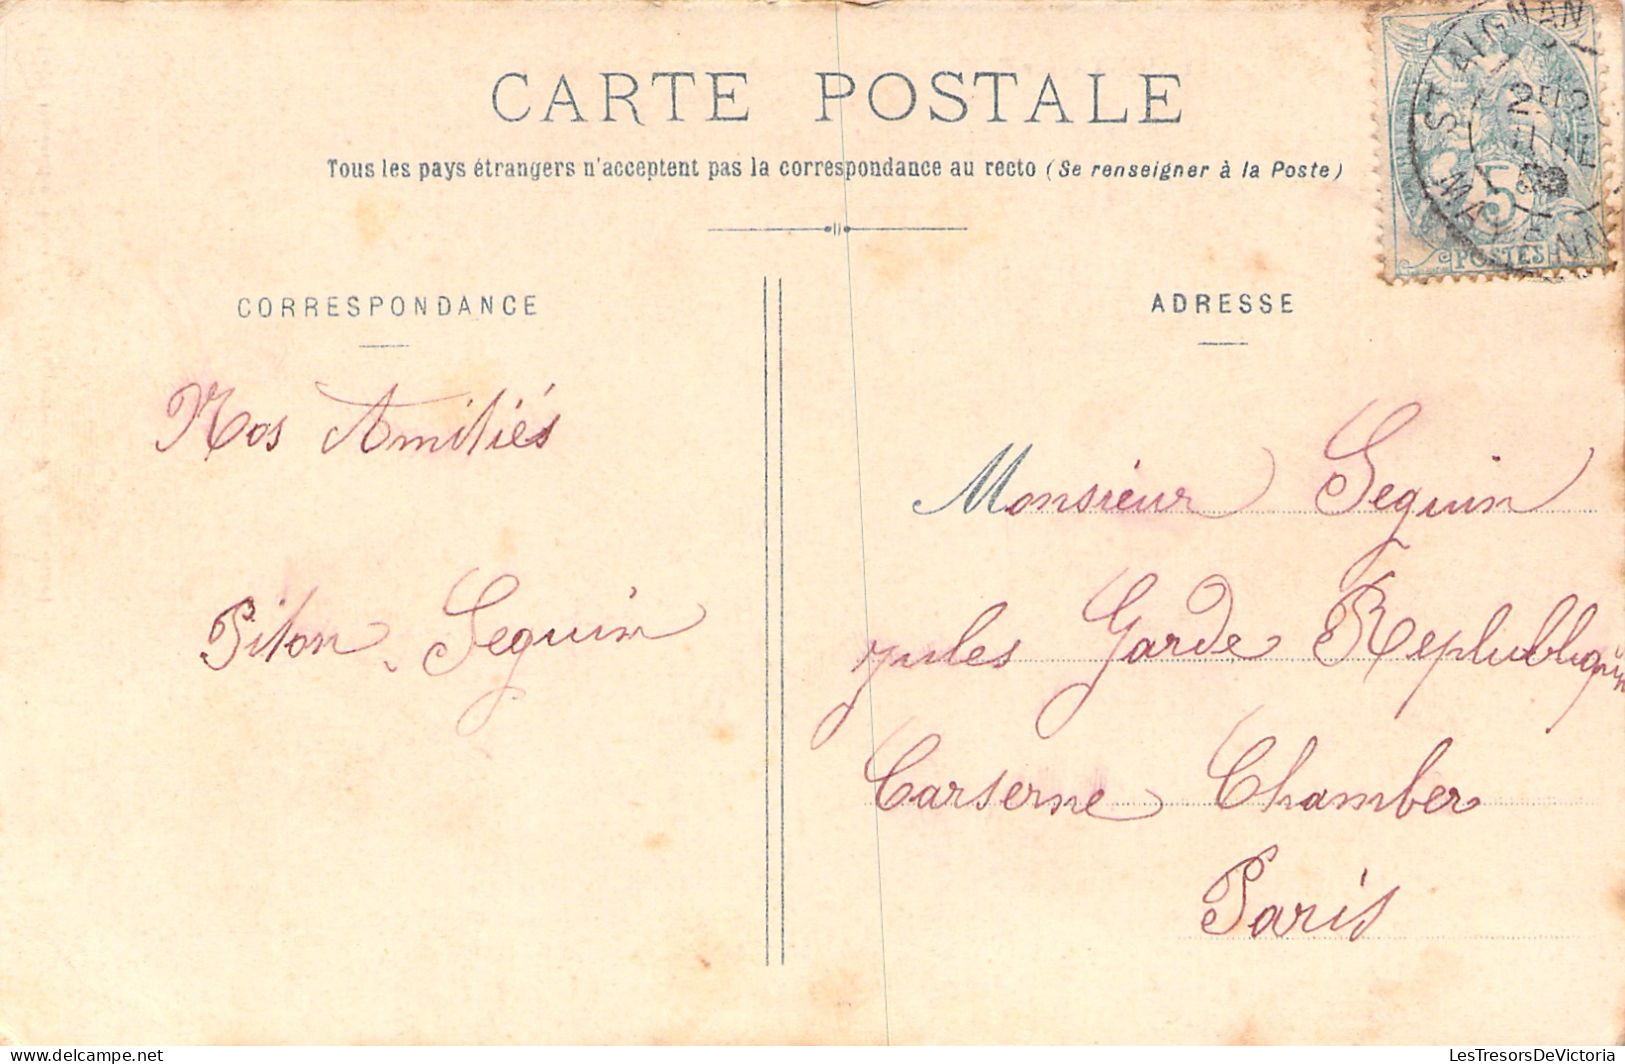 CARTE POSTALE
Tous les pays étrangers n'acceptent pas la correspondance au recto (Se renseigner à la Poste)
CORRESPONDANCE
ADRESSE
Nos Amitiés
Piton Seguin
Monsieur Seguin
jules Garde Replubliquin
Carserne Chamber
Paris
ST AIGNAN
5
POSTES
LesTresorsDeVictoria